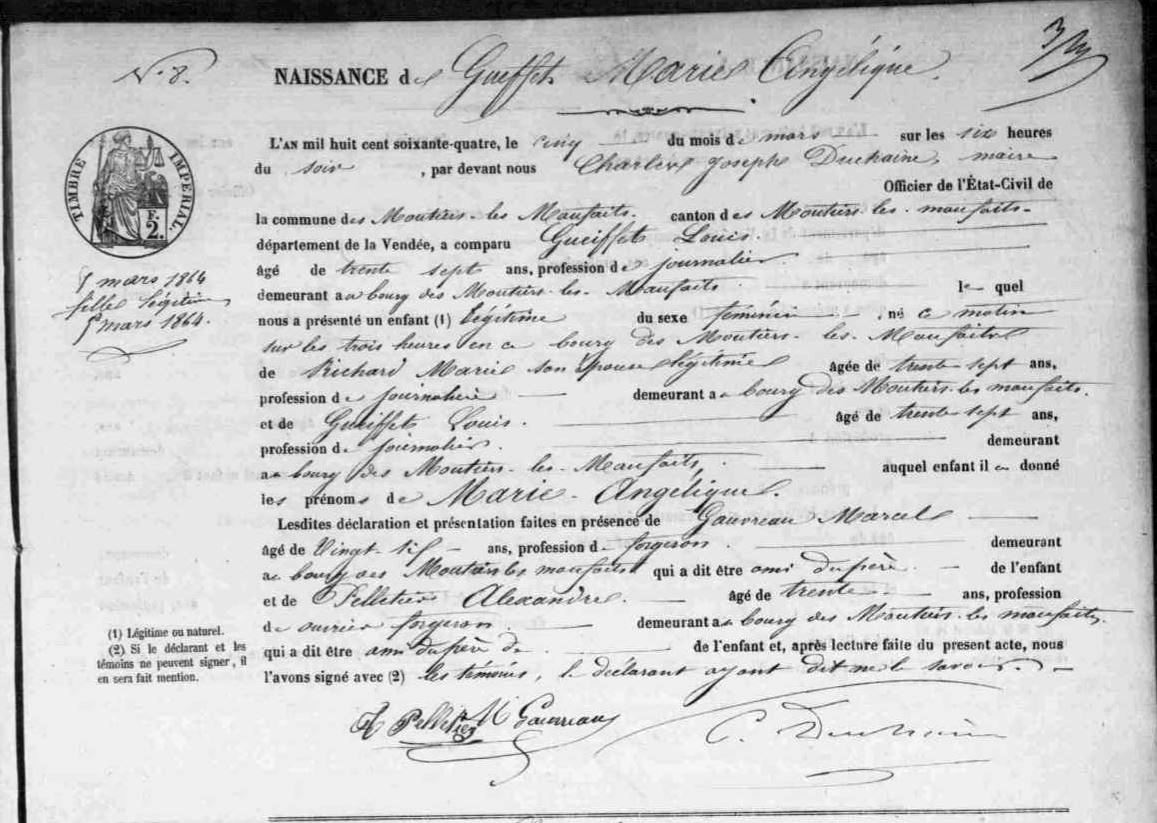 N.° 8.
NAISSANCE de Gueffet Marie Angélique.
TIMBRE IMPÉRIAL.
F.
2.
L'AN mil huit cent soixante-quatre, le cinq du mois de mars sur les six heures
du soir, par devant nous Charles Joseph Duchaine, maire
Officier de l'État-Civil de
la commune des Moutiers-les-Maufaits. canton des Moutiers-les-maufaits-
département de la Vendée, a comparu Gueiffet Louis.
âgé de trente sept ans, profession de journalier
demeurant au bourg des Moutiers-les-Maufaits. le quel
nous a présenté un enfant (1) légitime du sexe féminin, né ce matin
sur les trois heures en ce bourg des Moutiers-les-Maufaits
de Richard Marie son épouse légitime âgée de trente sept ans,
profession de journalière demeurant au bourg des Moutiers-les-maufaits.
et de Gueiffet Louis. âgé de trente-sept ans,
profession de journalier. demeurant
au bourg des Moutiers-les-Maufaits, auquel enfant il a donné
les prénoms de Marie-Angélique.
Lesdites déclaration et présentation faites en présence de Gauvreau Marcel
âgé de Vingt- ans, profession de forgeron. demeurant
au bourg des Moutiers les maufaits qui a dit être ami du père. de l'enfant
et de Pelletier Alexandre. âgé de trente ans, profession
de ouvrier forgeron demeurant au bourg des Moutiers-les maufaits.
qui a dit être ami du père de de l'enfant et, après lecture faite du present acte, nous
l'avons signé avec (2) les témoins, le déclarant ayant dit ne le savoir.
A Pelletier M Gauvreau C. Duchaine
mars 1864
fille légitime
mars 1864.
(1) Légitime ou naturel.
(2) Si le déclarant et les
témoins ne peuvent signer, il
en sera fait mention.